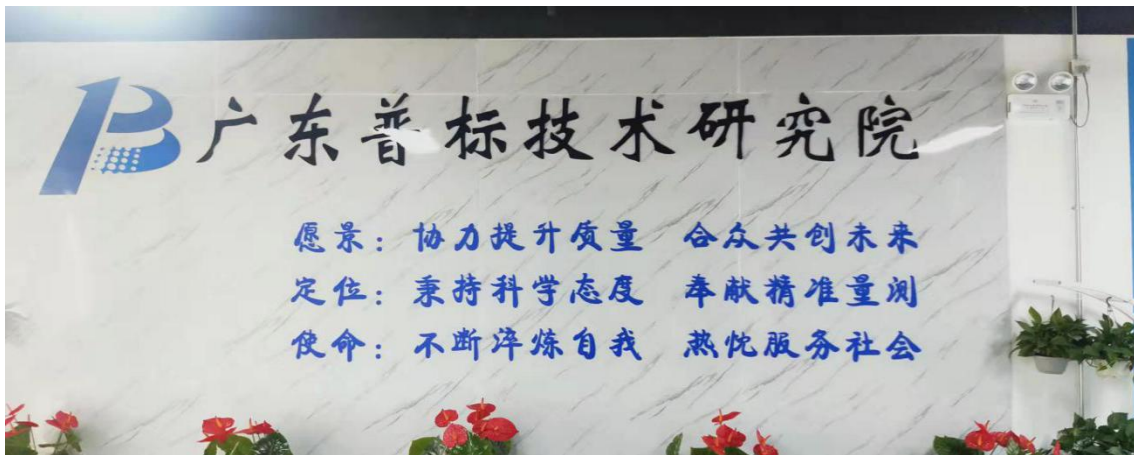 广东普标技术研究院
愿景：协力提升质量 合众共创未来
定位：秉持科学态度 奉献精准量测
使命：不断淬炼自我 热忱服务社会